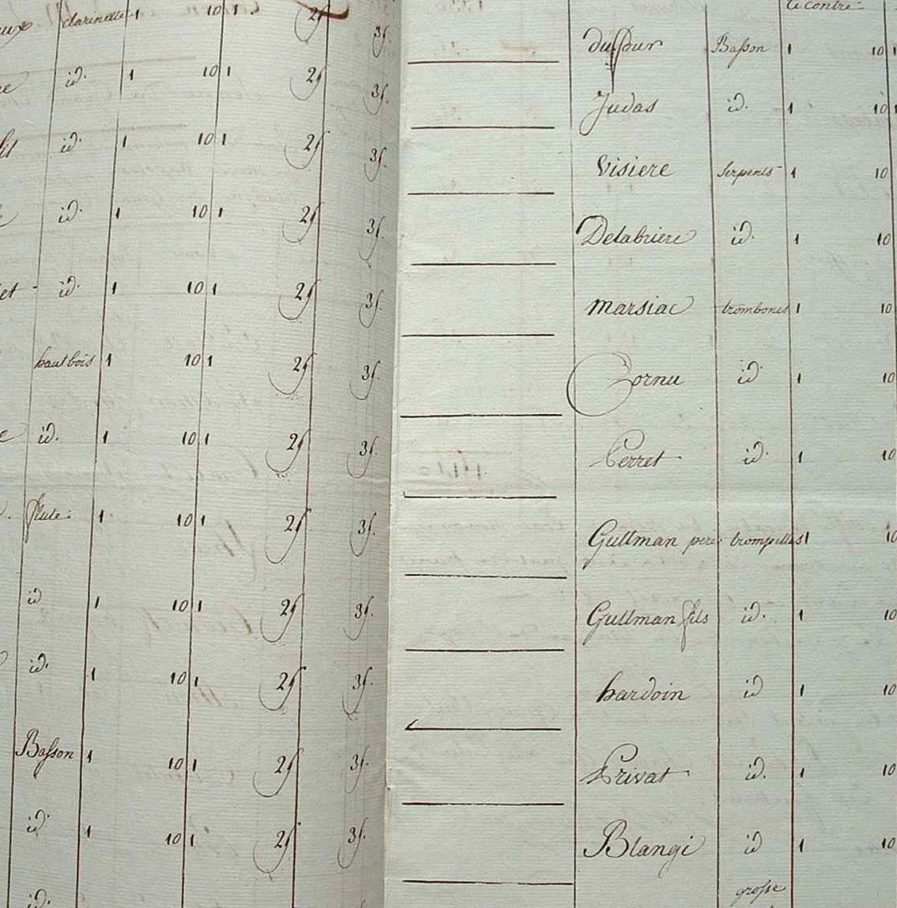 clarinette 1 10 1 2f 3f.
id. 1 10 1 2f 3f.
id. 1 10 1 2f 3f.
id. 1 10 1 2f 3f.
id. 1 10 1 2f 3f.
hautbois 1 10 1 2f 3f.
id. 1 10 1 2f 3f.
flute. 1 10 1 2f 3f.
id 1 10 1 2f 3f.
id. 1 10 1 2f 3f.
Basson 1 10 1 2f 3f.
id. 1 10 1 2f 3f.
id.
Ci contre
dufour Basson 1 10 1
Judas id. 1 10 1
Visiere Serpents 1 10
Delabriere id. 1 10
marsiac trombones 1 10
Cornu id. 1 10
Perret id. 1 10
Gullman pere trompettes 1 10
Gullman fils id. 1 10
hardoin id 1 10
Privat id. 1 10
Blangi id 1 10
grosse